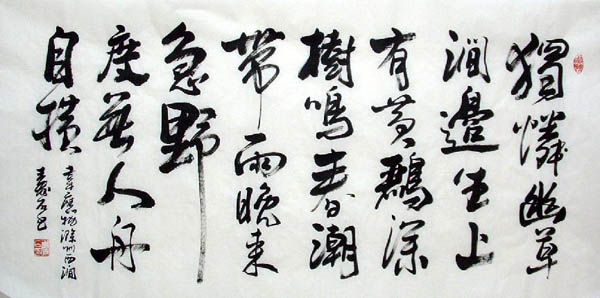 獨憐幽草
澗邊生上
有黃鸝深
樹鳴春潮
帶雨晚來
急野
度無人舟
自橫
韋應物滁州西澗